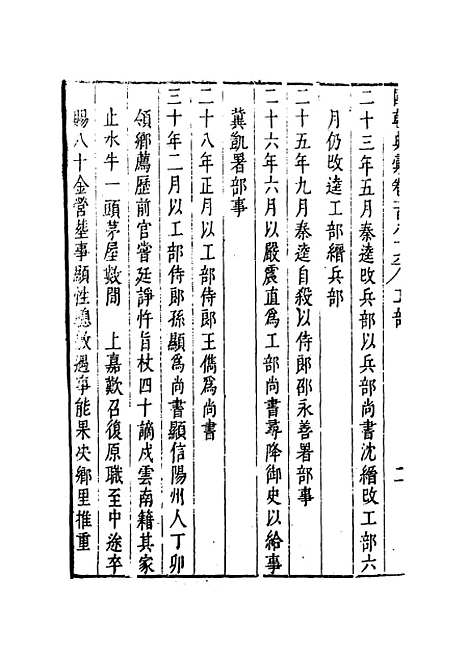 國朝典彙卷一百八十六 工部 二
二十三年五月秦逵改兵部以兵部尚書沈縉改工部六
月仍改逵工部縉兵部
二十五年九月秦逵自殺以侍郎邵永善署部事
二十六年六月以嚴震直爲工部尚書尋降御史以給事
冀凱署部事
二十八年正月以工部侍郎王儁爲尚書
三十年二月以工部侍郎孫顯爲尚書顯信陽州人丁卯
領鄉薦歷前官嘗廷諍忤旨杖四十謫戍雲南籍其家
止水牛一頭茅屋數間 上嘉歎召復原職至中途卒
賜八十金營塟事顯性聰敏遇事能果決鄉里推重